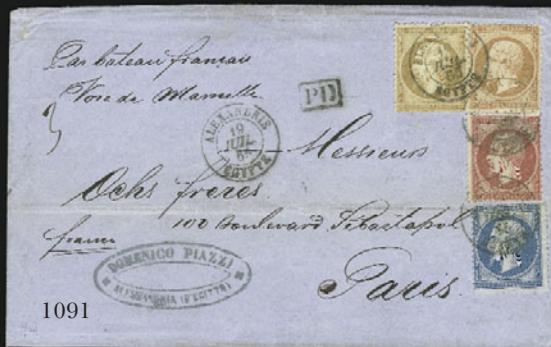 Par bateau français
Voie de Marseille
PD
ALEXANDRIE
19
JUIL.
6
EGYPTE
Messieurs
Ochs freres
100 Boulevard Sebastopol
franco
Paris
DOMENICO PIAZZI
ALESSANDRIA (D'EGITTO)
1091